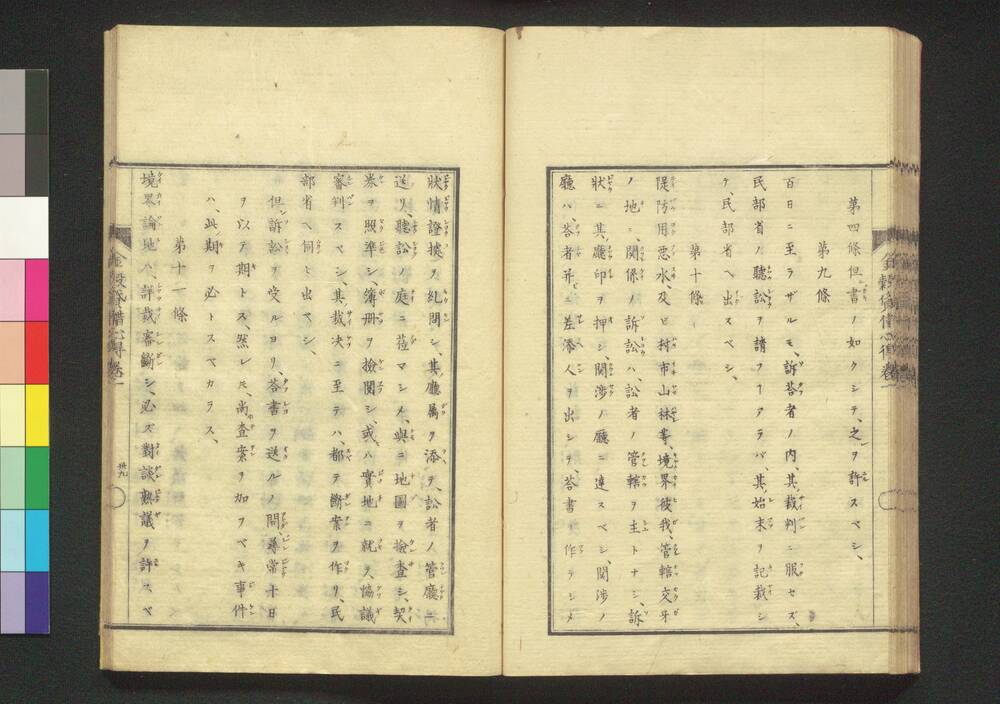 第四條但書ノ如クシテ、之ヲ許スベシ、
第九條
百日ニ至ラザルモ、訴答者ノ内、其裁判ニ服セズ、
民部省ノ聽訟ヲ請フ丅アラバ、其始末ヲ記裁シ
テ、民部省ヘ出スベシ、
第十條
堤防用悪水、及ビ村市山林等、境界彼我、管轄交牙
ノ地ニ、關係ノ訴訟ハ、訟者ノ管轄ヲ主トナシ、訴
狀ニ其廳印ヲ押シ、關渉ノ廳ニ達スベシ、關渉ノ
廳ハ、答者并ニ差添人ヲ出シテ、答書ヲ作ラシメ
狀情證據ヲ糺問シ、其廳属ヲ添ヘ訟者ノ管廳ニ
送リ、聽訟ノ庭ニ莅マシメ、與ニ地圖ヲ撿査シ、契
券ヲ照準シ、簿册ヲ撿閲シ、或ハ實地ニ就テ協議
審判スベシ、其裁决ニ至テハ、都テ斷案ヲ作リ、民
部省ヘ伺ヒ出ベシ、
但訴訟ヲ受ルヨリ、答書ヲ送ルノ間、尋常十日
ヲ以テ期トス、然レ𪜈、尚査案ヲ加フベキ事件
ハ、此期ヲ必トスベカラス、
第十一條
境界論地ハ、詳裁審斷シ、必ズ對談熟議ヲ許スベ
金穀貸借心得卷一
卅九